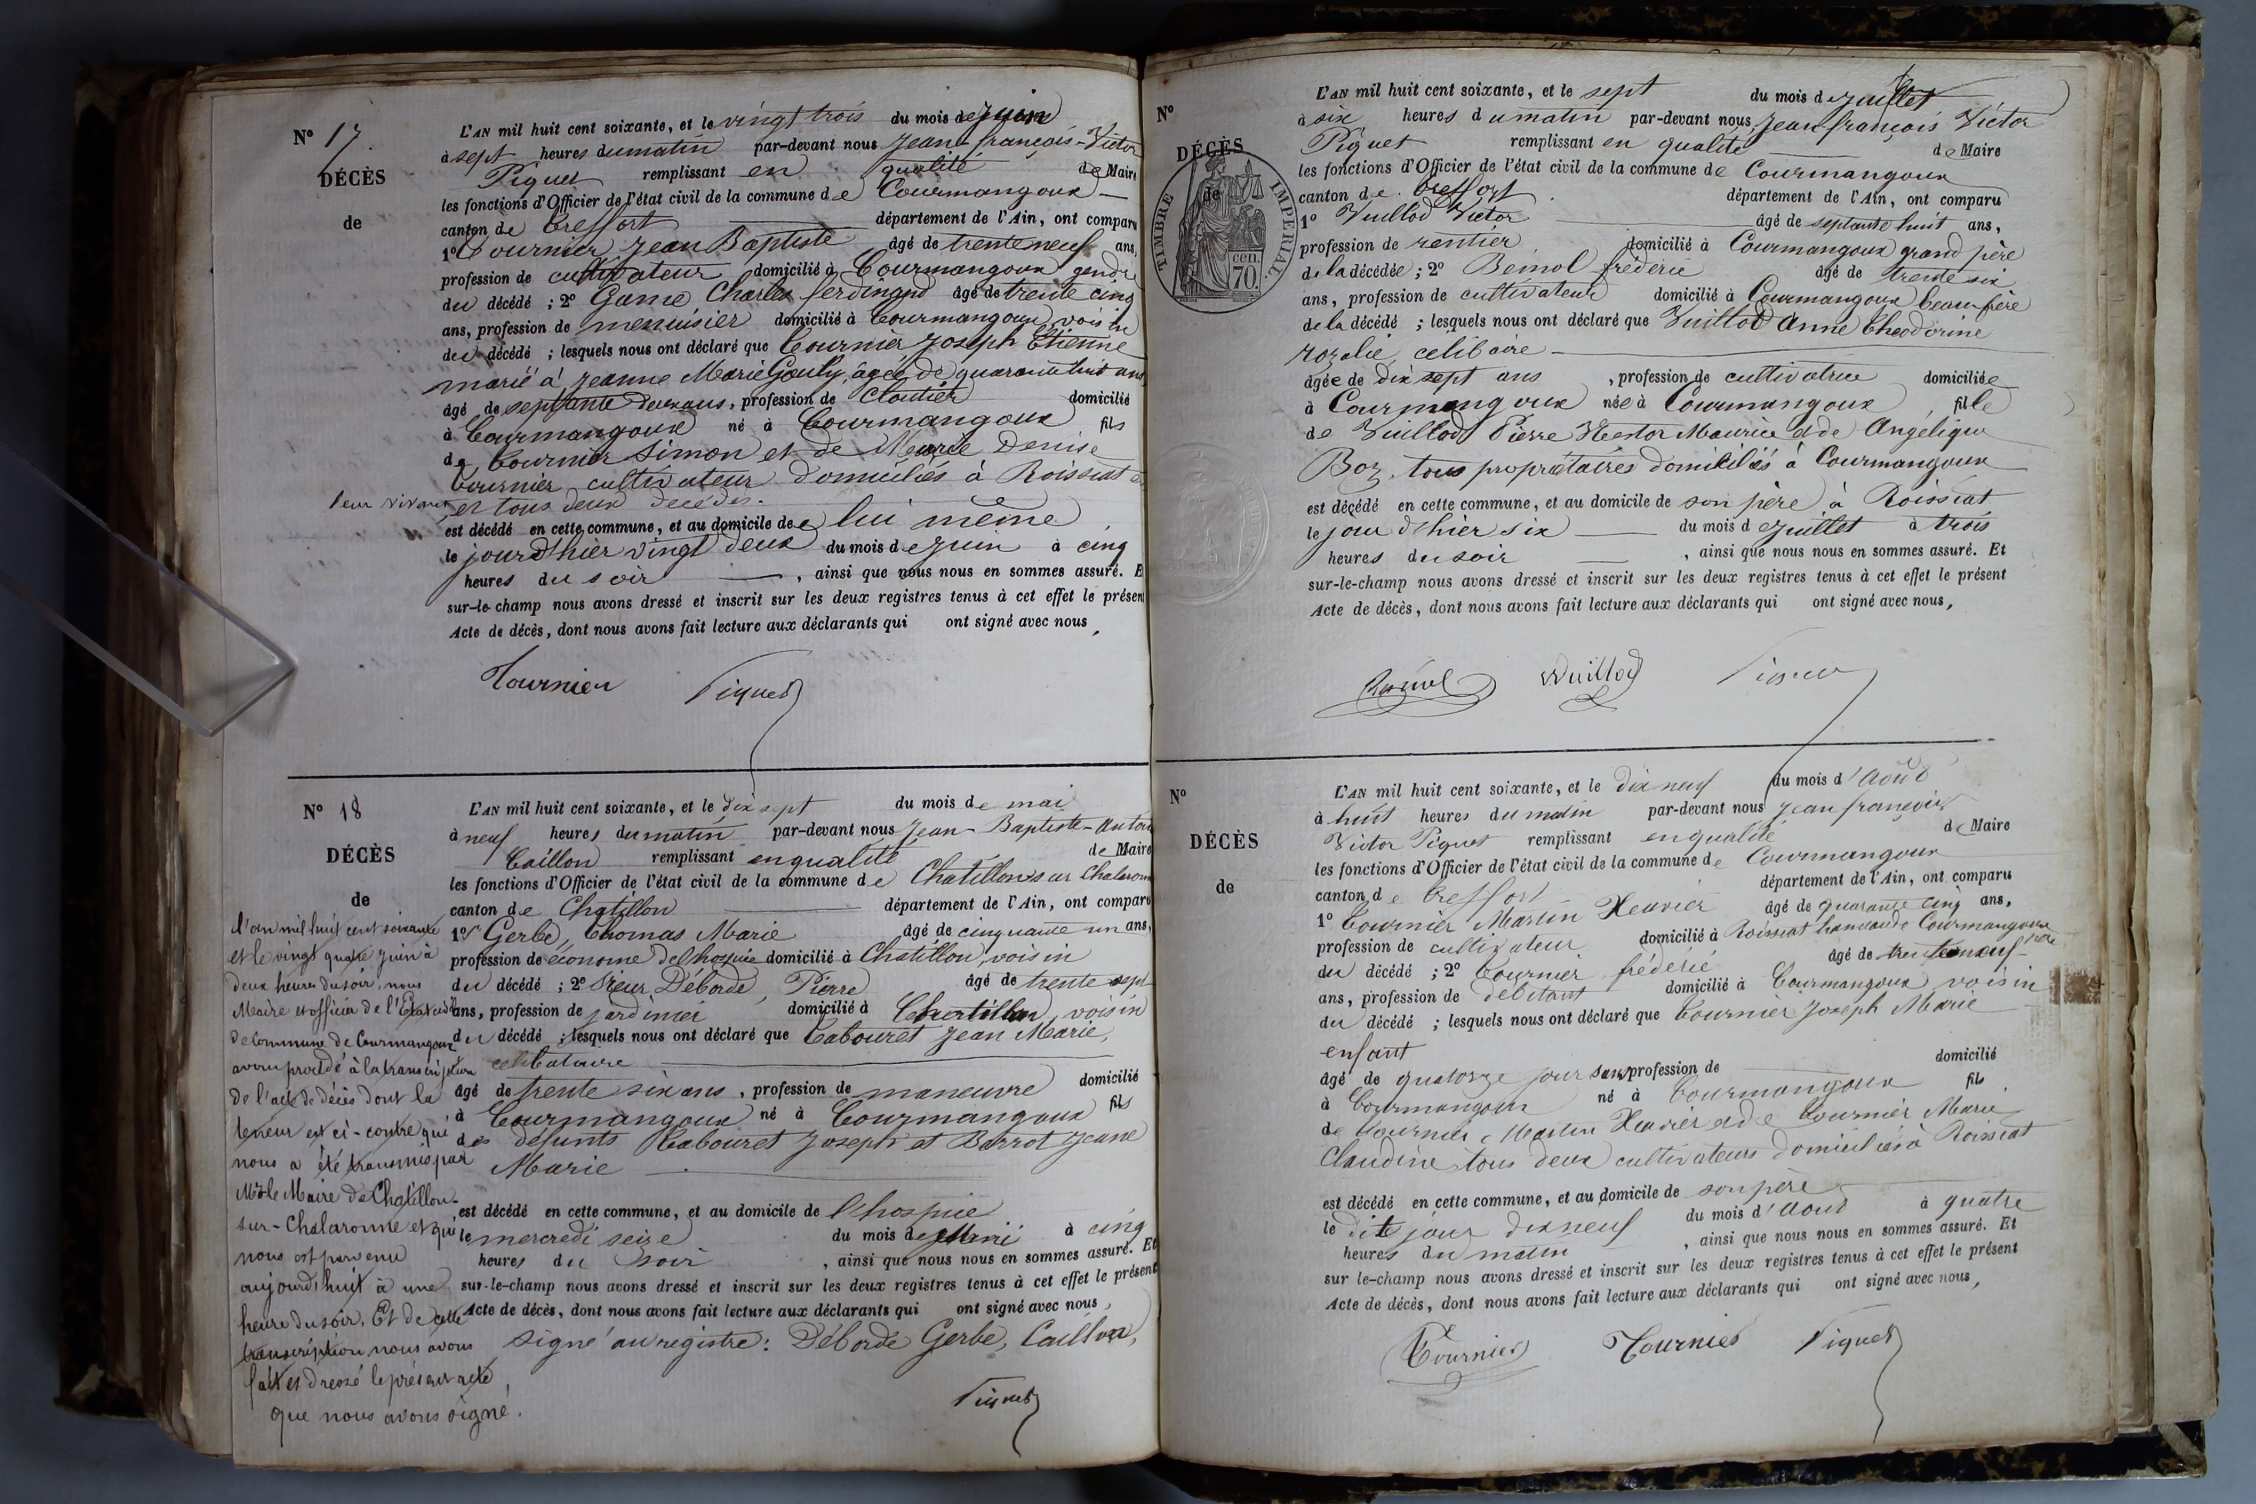 N° 17.
DÉCÈS
de
L'AN mil huit cent soixante, et le vingt trois du mois de juin
à sept heures du matin par-devant nous Jean-françois-Victor
Piquet remplissant en qualité de Maire
les fonctions d'Officier de l'état civil de la commune de Courmangoux
canton de Treffort département de l'Ain, ont comparu
1° Tournier Jean Baptiste âgé de trente neuf ans,
profession de cultivateur domicilié à Courmangoux gendre
du décédé ; 2° Game Charles ferdinand âgé de trente cinq
ans, profession de menuisier domicilié à Courmangoux voisin
du décédé ; lesquels nous ont déclaré que Tournier Joseph Etienne
marié à Jeanne Marie Gouly, agée de quarante huit ans
âgé de septante deux ans, profession de Cloutier domicilié
à Courmangoux né à Courmangoux fils
de Tournier Simon et de Marie Denise
Tournier cultivateur domiciliés à Roissiat de
leur vivant et tous deux décédés.
est décédé en cette commune, et au domicile de lui même
le jour d'hier vingt deux du mois de juin à cinq
heures du soir , ainsi que nous nous en sommes assuré. Et
sur-le-champ nous avons dressé et inscrit sur les deux registres tenus à cet effet le présent
Acte de décès, dont nous avons fait lecture aux déclarants qui ont signé avec nous,
Tournier Piquet
N° 18
DÉCÈS
de
L'AN mil huit cent soixante, et le dix sept du mois de mai
à neuf heures du matin par-devant nous Jean-Baptiste-Antoi
Caillon remplissant en qualité de Maire
les fonctions d'Officier de l'état civil de la commune de Chatillon sur Chalaronne
canton de Chatillon département de l'Ain, ont comparu
1° Gerbe, Thomas Marie âgé de cinquante un ans,
profession de économe de l'hospice domicilié à Chatillon, voisin
du décédé ; 2° Sieur Déborde, Pierre âgé de trente sept
ans, profession de jardinier domicilié à Chatillon, voisin
du décédé ; lesquels nous ont déclaré que Cabouret Jean Marie,
celibataire
âgé de trente six ans, profession de maneuvre domicilié
à Courmangoux né à Courmangoux fils
des défunts Cabouret Joseph et Borrot Jeane
Marie
est décédé en cette commune, et au domicile de l'hospice
le mercredi seize du mois de Mai à cinq
heures du soir , ainsi que nous nous en sommes assuré. Et
sur-le-champ nous avons dressé et inscrit sur les deux registres tenus à cet effet le présent
Acte de décès, dont nous avons fait lecture aux déclarants qui ont signé avec nous,
signé au registre : Déborde Gerbe, Caillon,
Piquet
l'an mil huit cent soixante
et le vingt quatre juin à
deux heures du soir, nous
Maire et officier de l'Etat civil
de commune de Courmangoux
avons procédé à la transcription
de l'acte de décès dont la
teneur est ci-contre qui
nous a été transmis par
Mr le Maire de Chatillon-
sur-Chalaronne et qui
nous est parvenu
aujourd'huit à une
heure du soir. Et de cette
transcription nous avons
fait et dressé le présent acte
que nous avons signé.
N°
DÉCÈS
de
TIMBRE IMPÉRIAL
70 cen.
L'AN mil huit cent soixante, et le sept du mois de juillet
à six heures du matin par-devant nous Jean françois Victor
Piquet remplissant en qualité de Maire
les fonctions d'Officier de l'état civil de la commune de Courmangoux
canton de Treffort département de l'Ain, ont comparu
1° Vuillod Victor âgé de septante huit ans,
profession de rentier domicilié à Courmangoux grand père
de la décédée ; 2° frédéric âgé de trente six
ans, profession de cultivateur domicilié à Courmangoux beau frère
de la décédé ; lesquels nous ont déclaré que Vuillod Anne Théodorine
Rozalie, celibaire
âgée de dix sept ans , profession de cultivatrice domiciliée
à Courmangoux née à Courmangoux fille
de Vuillod Pierre Nestor Maurice et de Angélique
Boz, tous propriétaires domiciliés à Courmangoux
est décédé en cette commune, et au domicile de son père à Roissiat
le jour d'hier six du mois de juillet à trois
heures du soir , ainsi que nous nous en sommes assuré. Et
sur-le-champ nous avons dressé et inscrit sur les deux registres tenus à cet effet le présent
Acte de décès, dont nous avons fait lecture aux déclarants qui ont signé avec nous,
Vuillod Piquet
N°
DÉCÈS
de
L'AN mil huit cent soixante, et le dix neuf du mois d'Août
à huit heures du matin par-devant nous Jean françois
Victor Piquet remplissant en qualité de Maire
les fonctions d'Officier de l'état civil de la commune de Courmangoux
canton de Treffort département de l'Ain, ont comparu
1° Tournier Martin Xavier âgé de quarante cinq ans,
profession de cultivateur domicilié à Roissiat hameau de Courmangoux père
du décédé ; 2° Tournier frédéric âgé de trente neuf
ans, profession de débitant domicilié à Courmangoux voisin
du décédé ; lesquels nous ont déclaré que Tournier Joseph Marie
enfant
âgé de quatorze jour sans profession de domicilié
à Courmangoux né à Courmangoux fils
de Tournier Martin Xavier et de Tournier Marie
Claudine tous deux cultivateurs domiciliés à Roissiat
est décédé en cette commune, et au domicile de son père
le dit jour dix neuf du mois d'Aout à quatre
heures du matin , ainsi que nous nous en sommes assuré. Et
sur le-champ nous avons dressé et inscrit sur les deux registres tenus à cet effet le présent
Acte de décès, dont nous avons fait lecture aux déclarants qui ont signé avec nous,
Tournier Tournier Piquet